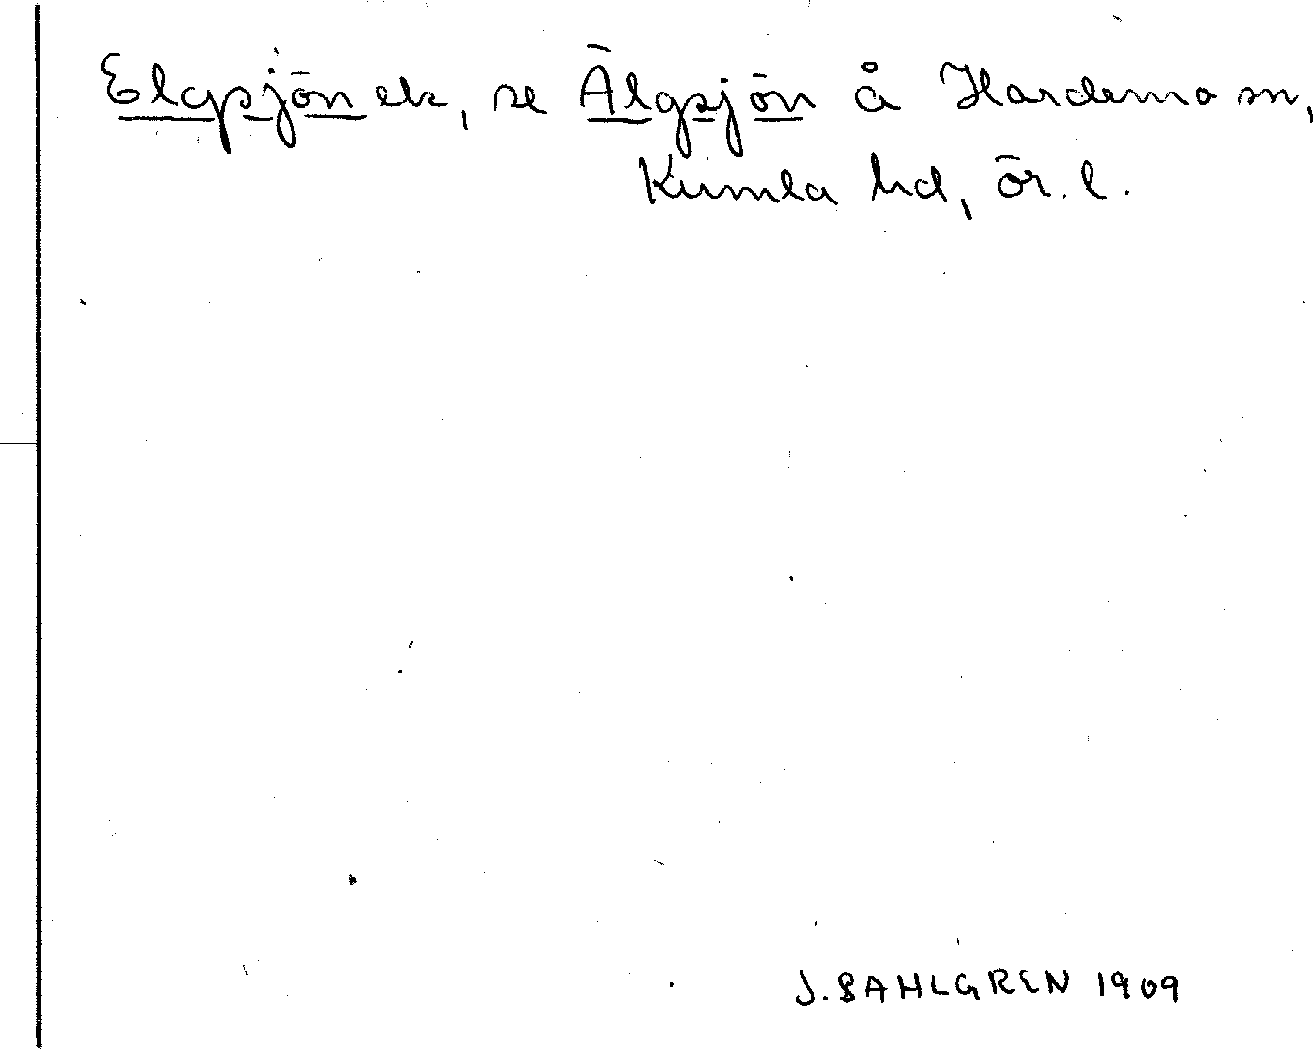 Elgsjön ek, se Älgsjön å Hardemo sn,
Kumla hd, Ör. l.
J. SAHLGREN 1909